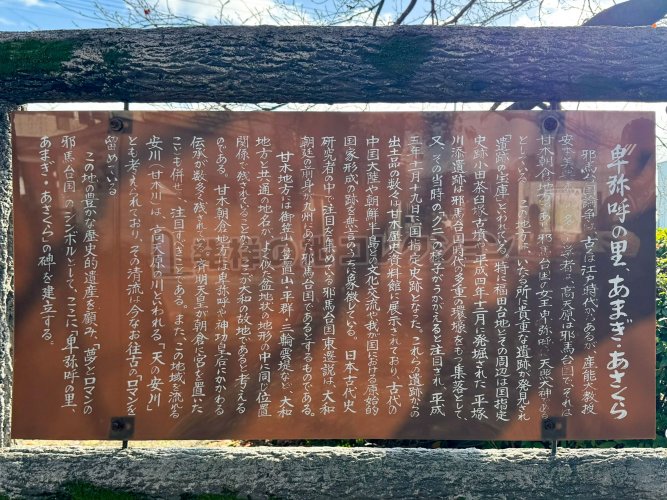 "卑弥呼の里、あまぎ・あさくら"
邪馬台国論争は、古は江戸時代からあるが、産能大教授
安本美典氏の名 学者は、高天原は邪馬台国で、それは
甘木朝倉地方であり、邪馬台国の女王卑弥呼は天照大神である
としている。この地方は、いたる所に貴重な遺跡が発見され
「遺跡の宝庫」といわれている。特に福田台地とその周辺は国指定
史跡小田茶臼塚古墳や、平成四年十二月に発掘された「平塚
川添遺跡は邪馬台国時代の多重の環壕をもつ集落として、
又、その当時の「クニ」の様子がうかがえると注目され、平成
五年十一月十九日に国指定史跡となった。これらの遺跡からの
出土品の数々は甘木歴史資料館に展示されており、古代の
中国大陸や朝鮮半島との文化交流や我が国における原始的
国家形成の跡を無言のうちに象徴している。日本古代史
研究者の中で注目を集めている邪馬台国東遷説は、大和
朝廷の前身は九州にあり、邪馬台国であるとするものである。
甘木地方は御笠山、笠置山、平群、三輪、雲堤など、大和
地方と共通の地名が多く似た盆地状の地形の中に同じ位置
関係で残されていることから、ここが大和の故地であると考える
のである。甘木朝倉地方には卑弥呼や神功皇后にかかわる
伝承が数多く残されており、斉明天皇が朝倉に宮を置いた
ことも併せて、注目すべきことである。また、この地域を流れる
安川(甘木川)は、高天原の川といわれる「天の安川」
とも考えられており、その清流は今なお往古のロマンを
留めている。
この地の豊かな歴史的遺産を顧み、「夢とロマンの
邪馬台国」のシンボルとして、ここに「卑弥呼の里、
あまぎ・あさくら」の碑を建立する。